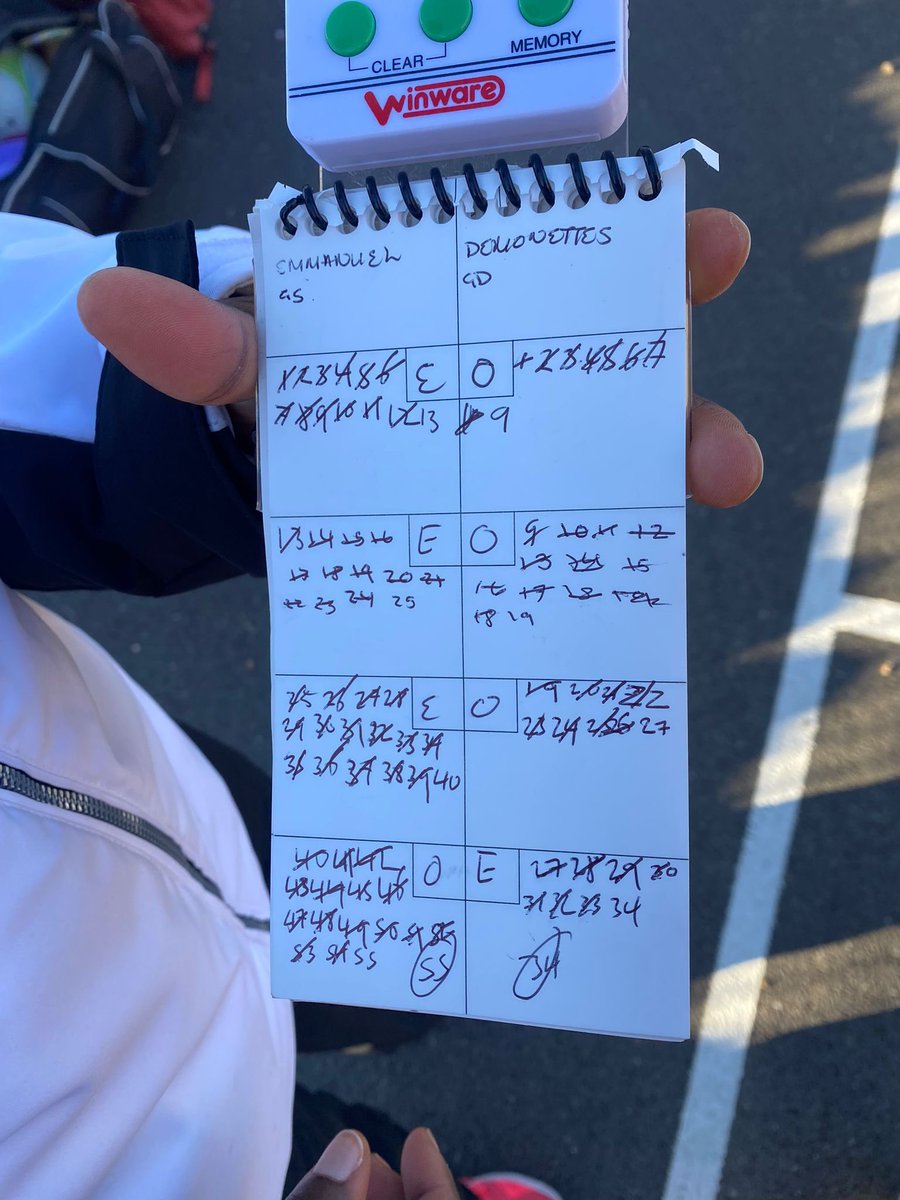 CLEAR
MEMORY
Winware
EMMANUEL
GS
DEMONETTES
GD
1 2 3 4 5 6
E
O
1 2 3 4 5 6 7
7 8 9 10 11 12 13
9
13 14 15 16
E
O
9 10 11 12
17 18 19 20 21
13 14 15
22 23 24 25
16 17 18
18 19
25 26 27 28
E
O
19 20 21 22
29 30 31 32 33 34
23 24 25 26 27
35 36 37 38 39 40
40 41 42
O
E
27 28 29 30
43 44 45 46
31 32 33 34
47 48 49 50 51 52
53 54 55
55
34